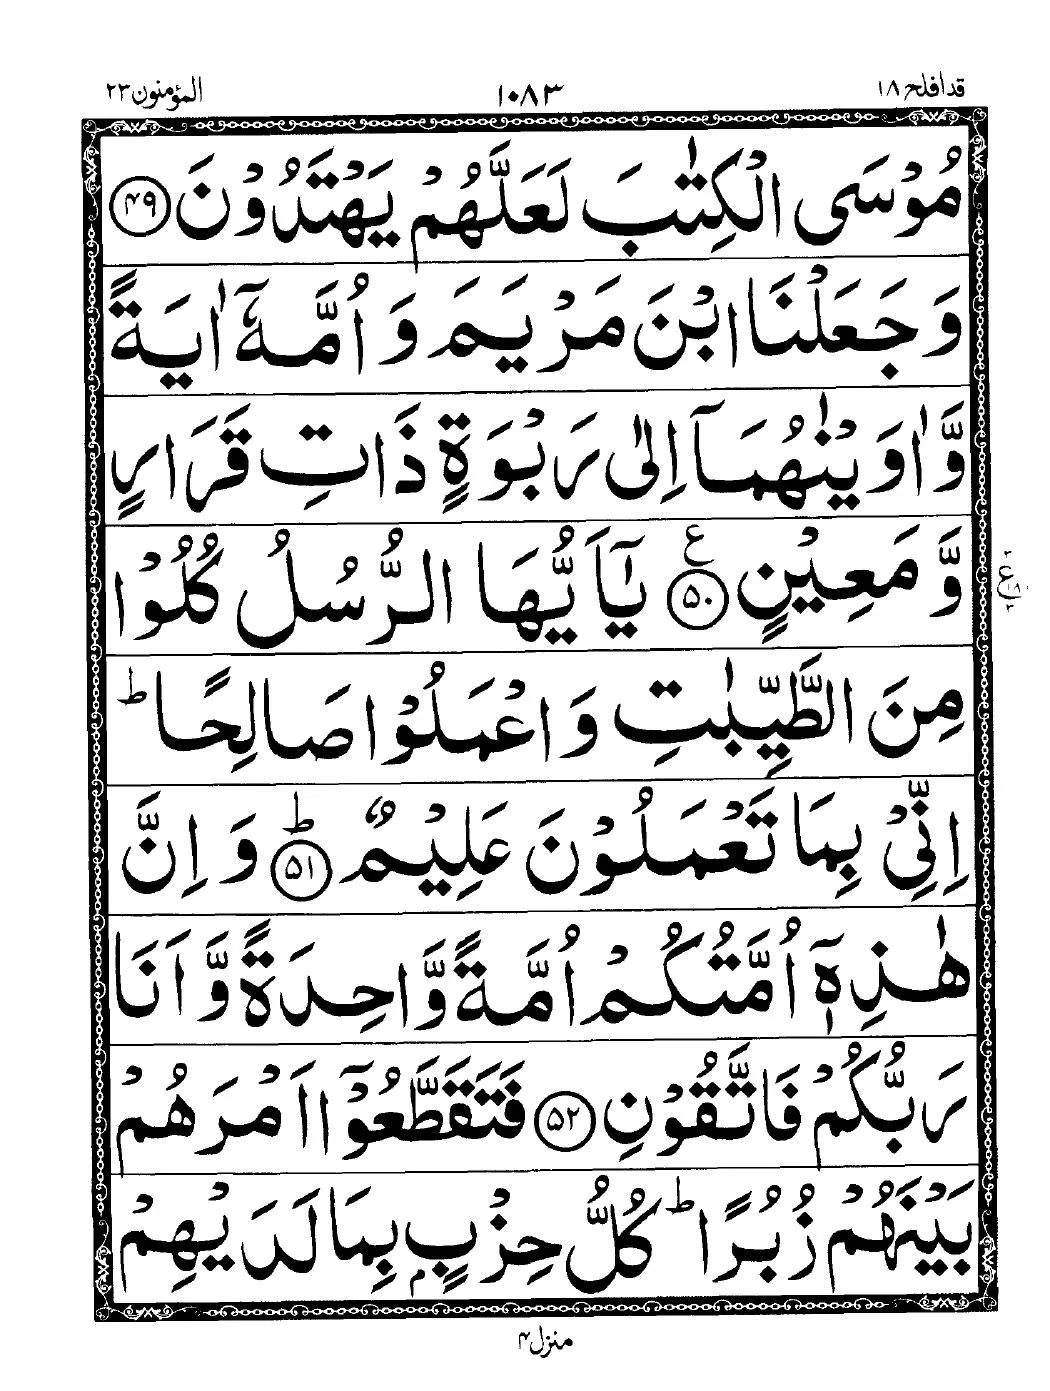 قد افلح ١٨
١٠٨٣
المؤمنون ٢٣
مُوْسَى الْكِتٰبَ لَعَلَّهُمْ يَهْتَدُوْنَ ﴿۴۹﴾
وَ جَعَلْنَا ابْنَ مَرْيَمَ وَ اُمَّهٗۤ اٰيَةً
وَّ اٰوَيْنٰهُمَاۤ اِلٰى رَبْوَةٍ ذَاتِ قَرَارٍ
وَّ مَعِيْنٍ ﴿۵۰﴾ ع يٰۤاَيُّهَا الرُّسُلُ كُلُوْا
مِنَ الطَّيِّبٰتِ وَ اعْمَلُوْا صَالِحًا ؕ
اِنِّيْ بِمَا تَعْمَلُوْنَ عَلِيْمٌ ﴿۵۱﴾ؕ وَ اِنَّ
هٰذِهٖۤ اُمَّتُكُمْ اُمَّةً وَّاحِدَةً وَّ اَنَا
رَبُّكُمْ فَاتَّقُوْنِ ﴿۵۲﴾ فَتَقَطَّعُوْۤا اَمْرَهُمْ
بَيْنَهُمْ زُبُرًا ؕ كُلُّ حِزْبٍۭ بِمَا لَدَيْهِمْ
٢
ع
١٨
٣
منزل ۴